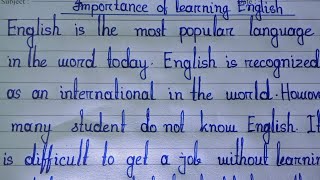 Subject :
Importance of learning English
English is the most popular language
in the word today. English is recognized
as an international in the world. Howev
many student do not know English. It
is difficult to get a job without learnin